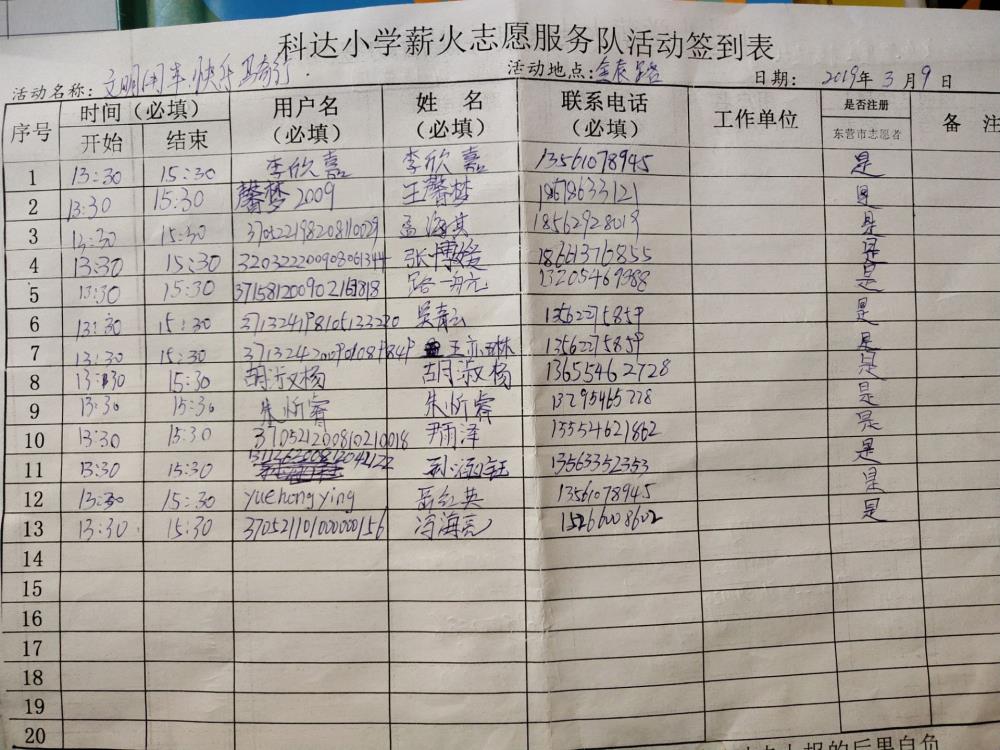 科达小学薪火志愿服务队活动签到表
活动名称：文明用车.快乐骑行. 活动地点：金辰路 日期： 2019年 3月 9日
序号 时间（必填） 用户名（必填） 姓 名（必填） 联系电话（必填） 工作单位 是否注册 备 注
开始 结束 东营市志愿者
1 13:30 15:30 李欣嘉 李欣嘉 13561078945 是
2 13:30 15:30 馨梦2009 王馨梦 18678633121 是
3 13:30 15:30 370522198208110029 孟海其 18562928019 是
4 13:30 15:30 320322200908061344 张博 18661376855 是
5 13:30 15:30 371581200902169818 路 13205469388 是
6 13:30 15:30 371324198105133220 吴 13562275859 是
7 13:30 15:30 371324200901089849 王亦琳 13562275859 是
8 13:30 15:30 胡淑杨 胡淑杨 13655462728 是
9 13:30 15:30 朱忻睿 朱忻睿 13295465228 是
10 13:30 15:30 370521200810210018 尹雨泽 15554621862 是
11 13:30 15:30 13563352353 是
12 13:30 15:30 yuehongying 岳红英 13561078945 是
13 13:30 15:30 37052110100000156 冯海亮 15266008602 是
14
15
16
17
18
19
20